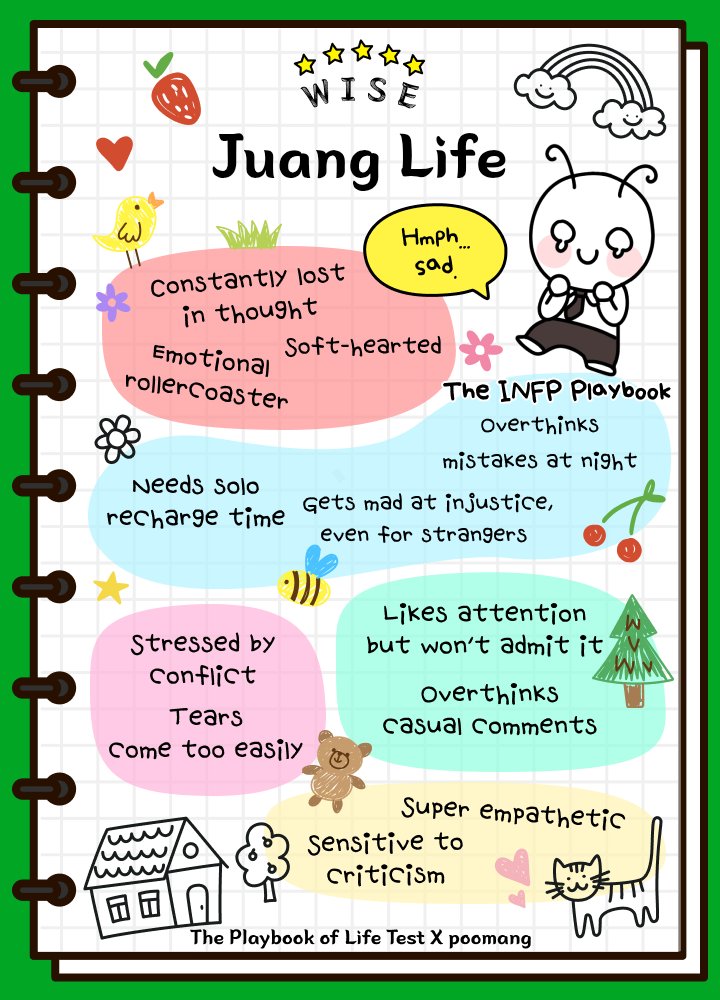 WISE
Juang Life
Hmph...
sad.
Constantly lost
in thought
Soft-hearted
Emotional
rollercoaster
The INFP Playbook
Overthinks
mistakes at night
Needs solo
recharge time
Gets mad at injustice,
even for strangers
Likes attention
but won't admit it
Overthinks
casual comments
Stressed by
conflict
Tears
come too easily
Super empathetic
Sensitive to
criticism
The Playbook of Life Test X poomang